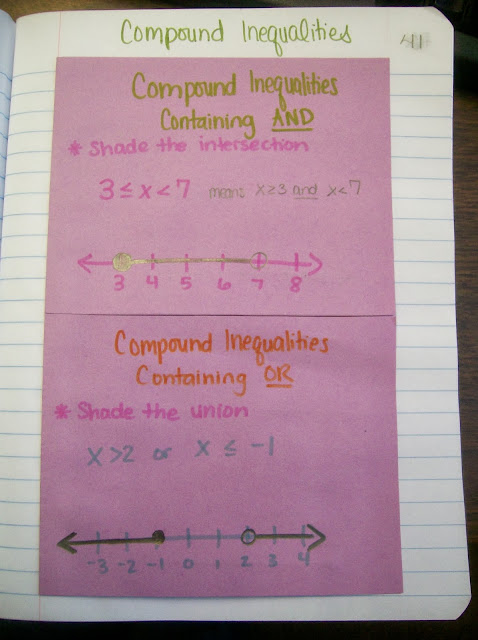 Compound Inequalities
Compound Inequalities
Containing AND
* Shade the intersection
3 ≤ x < 7 means x ≥ 3 and x < 7
3 4 5 6 7 8
Compound Inequalities
Containing OR
* Shade the union
x > 2 or x ≤ -1
-3 -2 -1 0 1 2 3 4